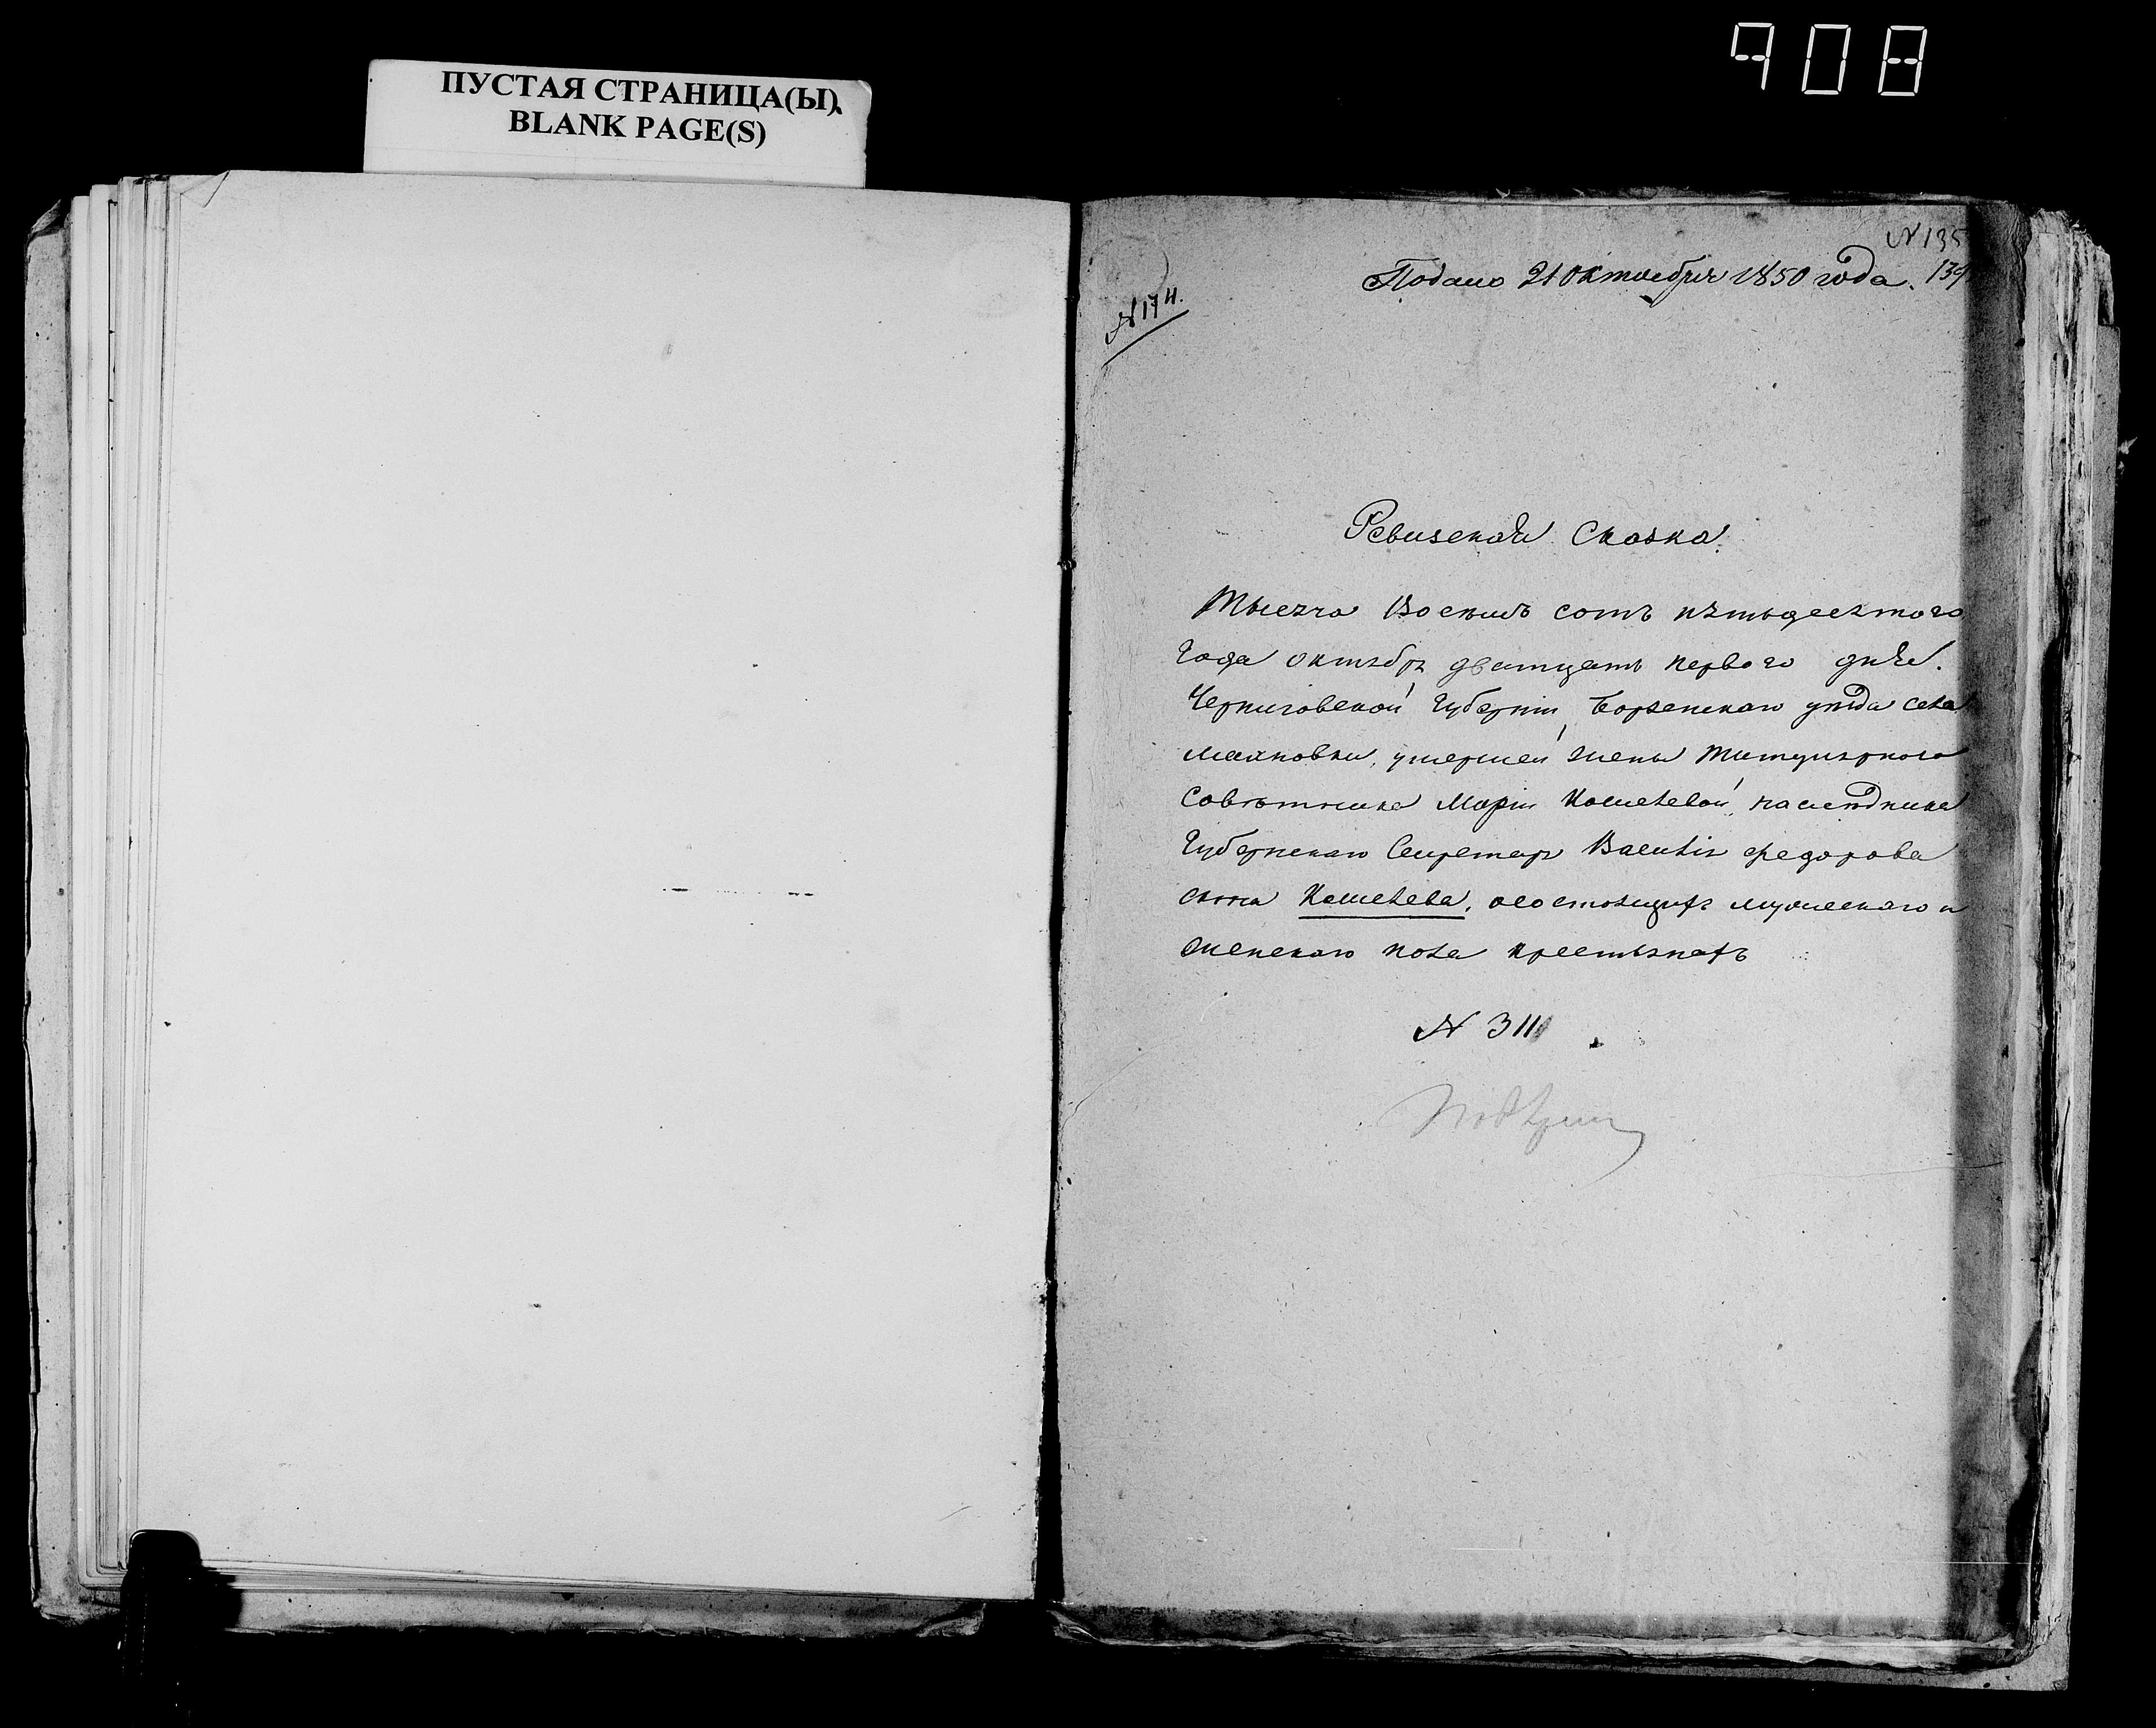 908
ПУСТАЯ СТРАНИЦА(Ы)
BLANK PAGE(S)
N 135
Подано 21 Октоября 1850 года. 139
N 174.
Ревизская Сказка
Тысяча Восемь сотъ пятьдесятого
Года октября дватцать первого дня.
Черниговской Губерніи Борзенскаго уѣзда села
умершей жены Титулярного
Совѣтника Маріи Кошелевой, наслѣдника
Губернскаго Секретаря Василія Федорова
сына Кошелева, о состоящихъ мужескаго и
женскаго пола крестьянахъ
N 311